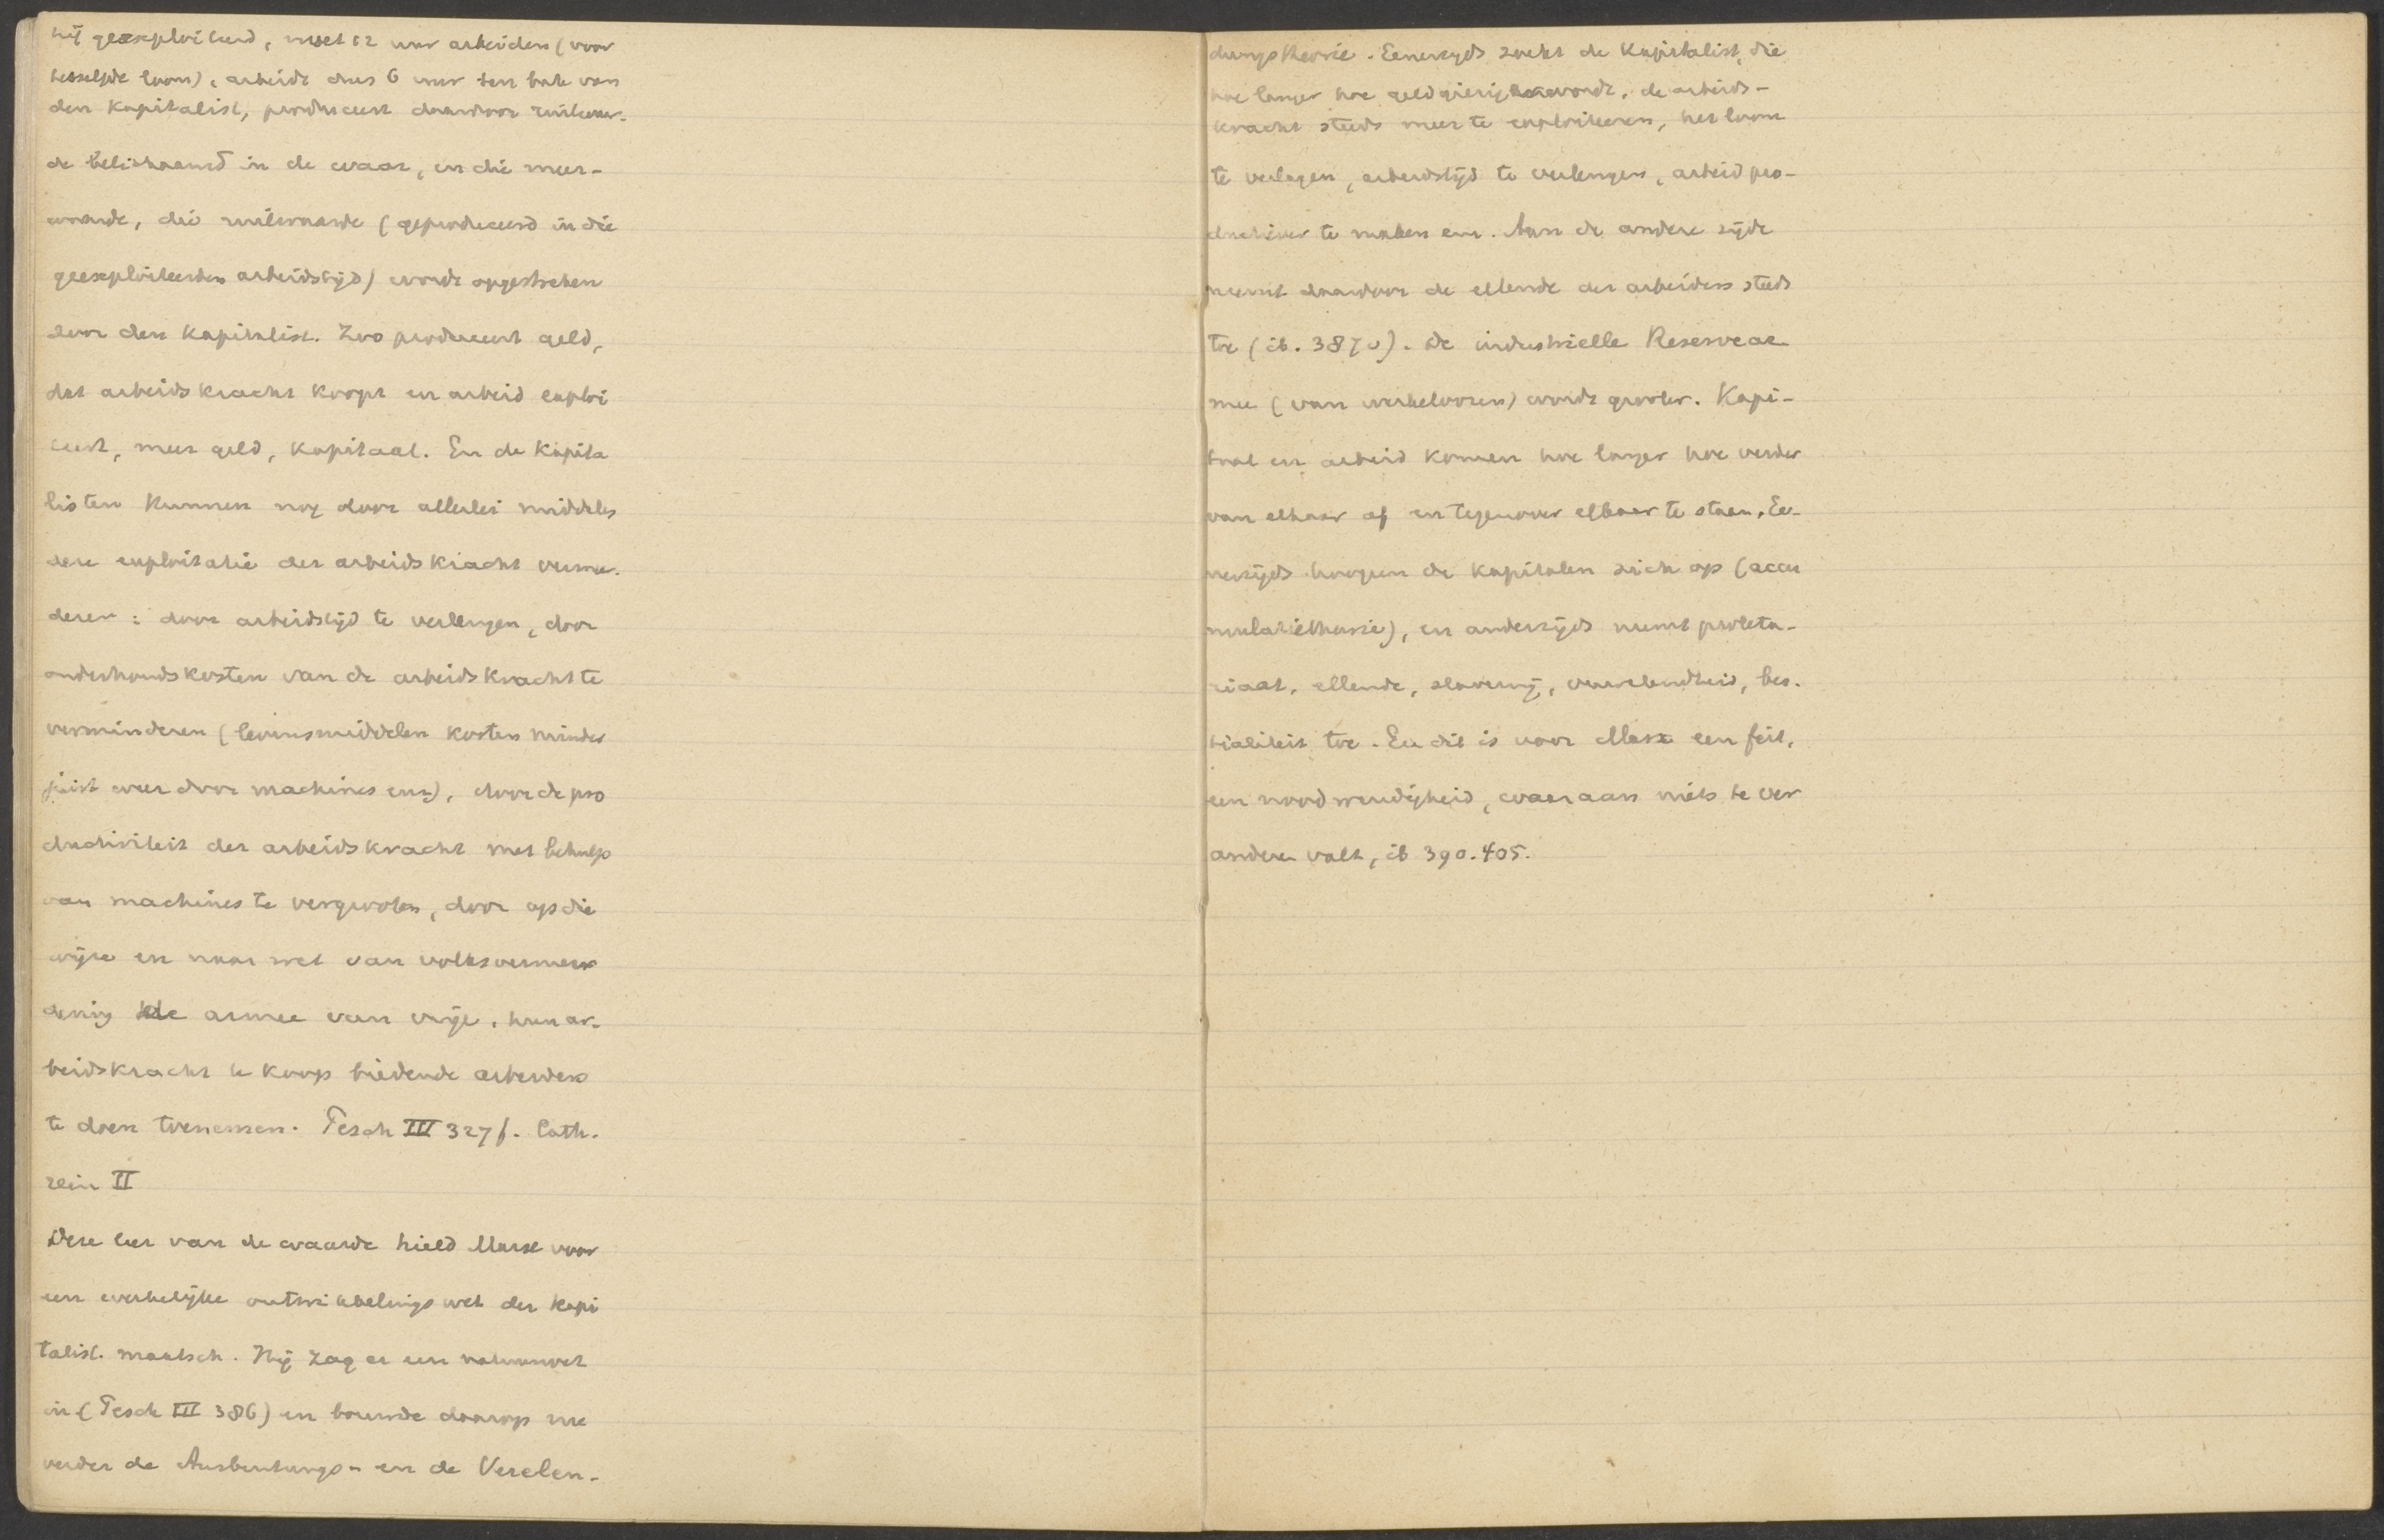 hij geexploiteerd, moet 12 uur arbeiden (voor
hetzelfde loon), arbeidt dus 6 uur ten bate van
den Kapitalist, produceert daardoor ruilwaar-
de belichaamd in de waar, en die meer-
waarde, die ruilwaarde (geproduceerd in die
geexploiteerden arbeidstijd) wordt opgestreken
door den Kapitalist. Zoo produceert geld,
dat arbeidskracht koopt en arbeid exploi
teert, meer geld, Kapitaal. En de Kapita
listen kunnen nog door allerlei middelen
deze exploitatie der arbeidskracht vermee-
deren: door arbeidstijd te verlengen, door
onderhoudskosten van de arbeidskracht te
verminderen (levensmiddelen kosten minder
juist weer door machines enz), door de pro
ductiviteit der arbeidskracht met behulp
van machines te vergrooten, door op die
wijze en naar wet van volksvermeer
dering de armee van vrije, hun ar-
beidskracht te koop biedende arbeiders
te doen toenemen. Pesch III 327 f. Cath-
rein II
Deze leer van de waarde hield Marx voor
een werkelijke ontwikkelingswet der Kapi
talist. maatsch. Hij zag er een natuurwet
in (Pesch III 386) en bouwde daarop nu
verder de Ausbeutungs- en de Verelen-
dungstheorie. Eenerzijds zoekt de Kapitalist, die
hoe langer hoe geldgierig wordt, de arbeids-
kracht steeds meer te exploiteeren, het loon
te verlagen, arbeidstijd te verlengen, arbeid pro-
ductiver te maken enz. Aan de andere zijde
neemt daardoor de ellende der arbeiders steeds
toe (ib. 387 v). De industrielle Reservear
mee (van werkeloozen) wordt grooter. Kapi-
taal en arbeid komen hoe langer hoe verder
van elkaar af en tegenover elkaar te staan. Ee-
nerzijds hoopen de kapitalen zich op (accu
mulatietheorie), en anderzijds neemt proleta-
riaat, ellende, slavernij, onwetendheid, bes-
tialiteit toe. En dit is voor Marx een feit,
een noodwendigheid, waaraan niets te ver
anderen valt, ib 390. 405.